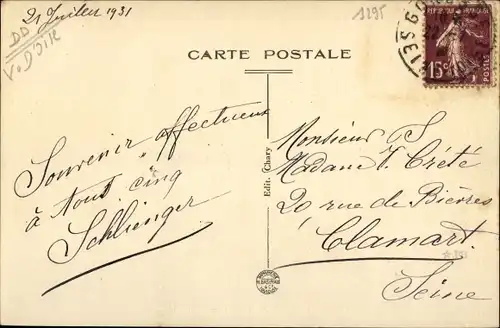 21 Juillet 1931
1295
CARTE POSTALE
15c
POSTES
Souvenir affectueux
à tous cinq
Schlienger
Edit. Chary
Monsieur &
Madame V. Crété
20 rue de Bièvres
Clamart.
Seine